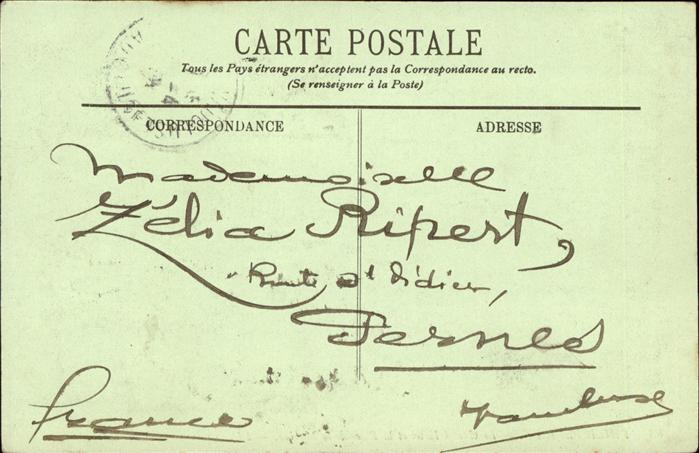 CARTE POSTALE
Tous les Pays étrangers n'acceptent pas la Correspondance au recto.
(Se renseigner à la Poste)
CORRESPONDANCE
ADRESSE
Mademoiselle
Zélia Ripert,
Route St Didier,
Pernes
Vaucluse
France